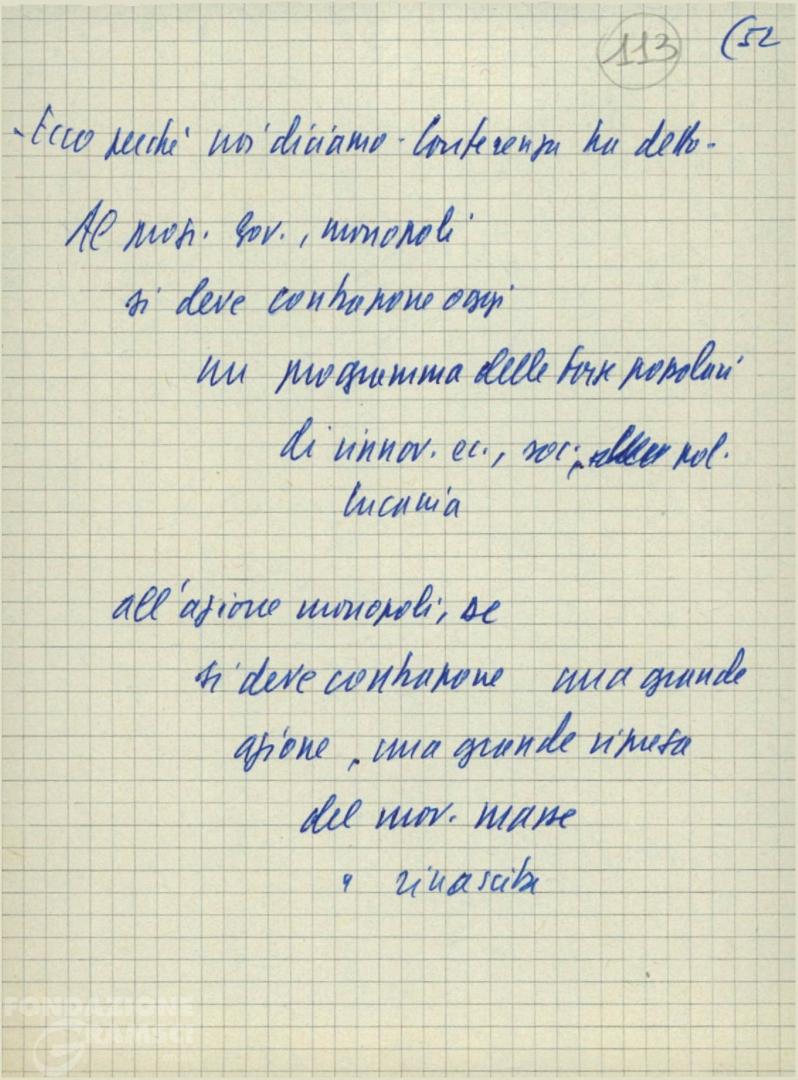 113 (52
- Ecco perché noi diciamo - Conferenza ha detto -
Al progr. gov., monopoli
si deve contrapporre oggi
un programma delle forze popolari
di rinnov. ec., soc., pol.
Lucania
all'azione monopoli,
si deve contrapporre una grande
azione, una grande ripresa
del mov. masse
" rinascita
FONDAZIONE
GRAMSCI